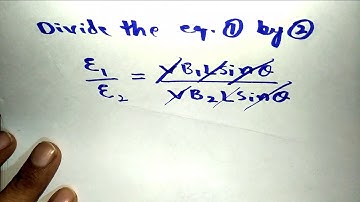 Divide the eq. ① by ②
ε₁/ε₂ = VB₁Lsinθ/VB₂Lsinθ